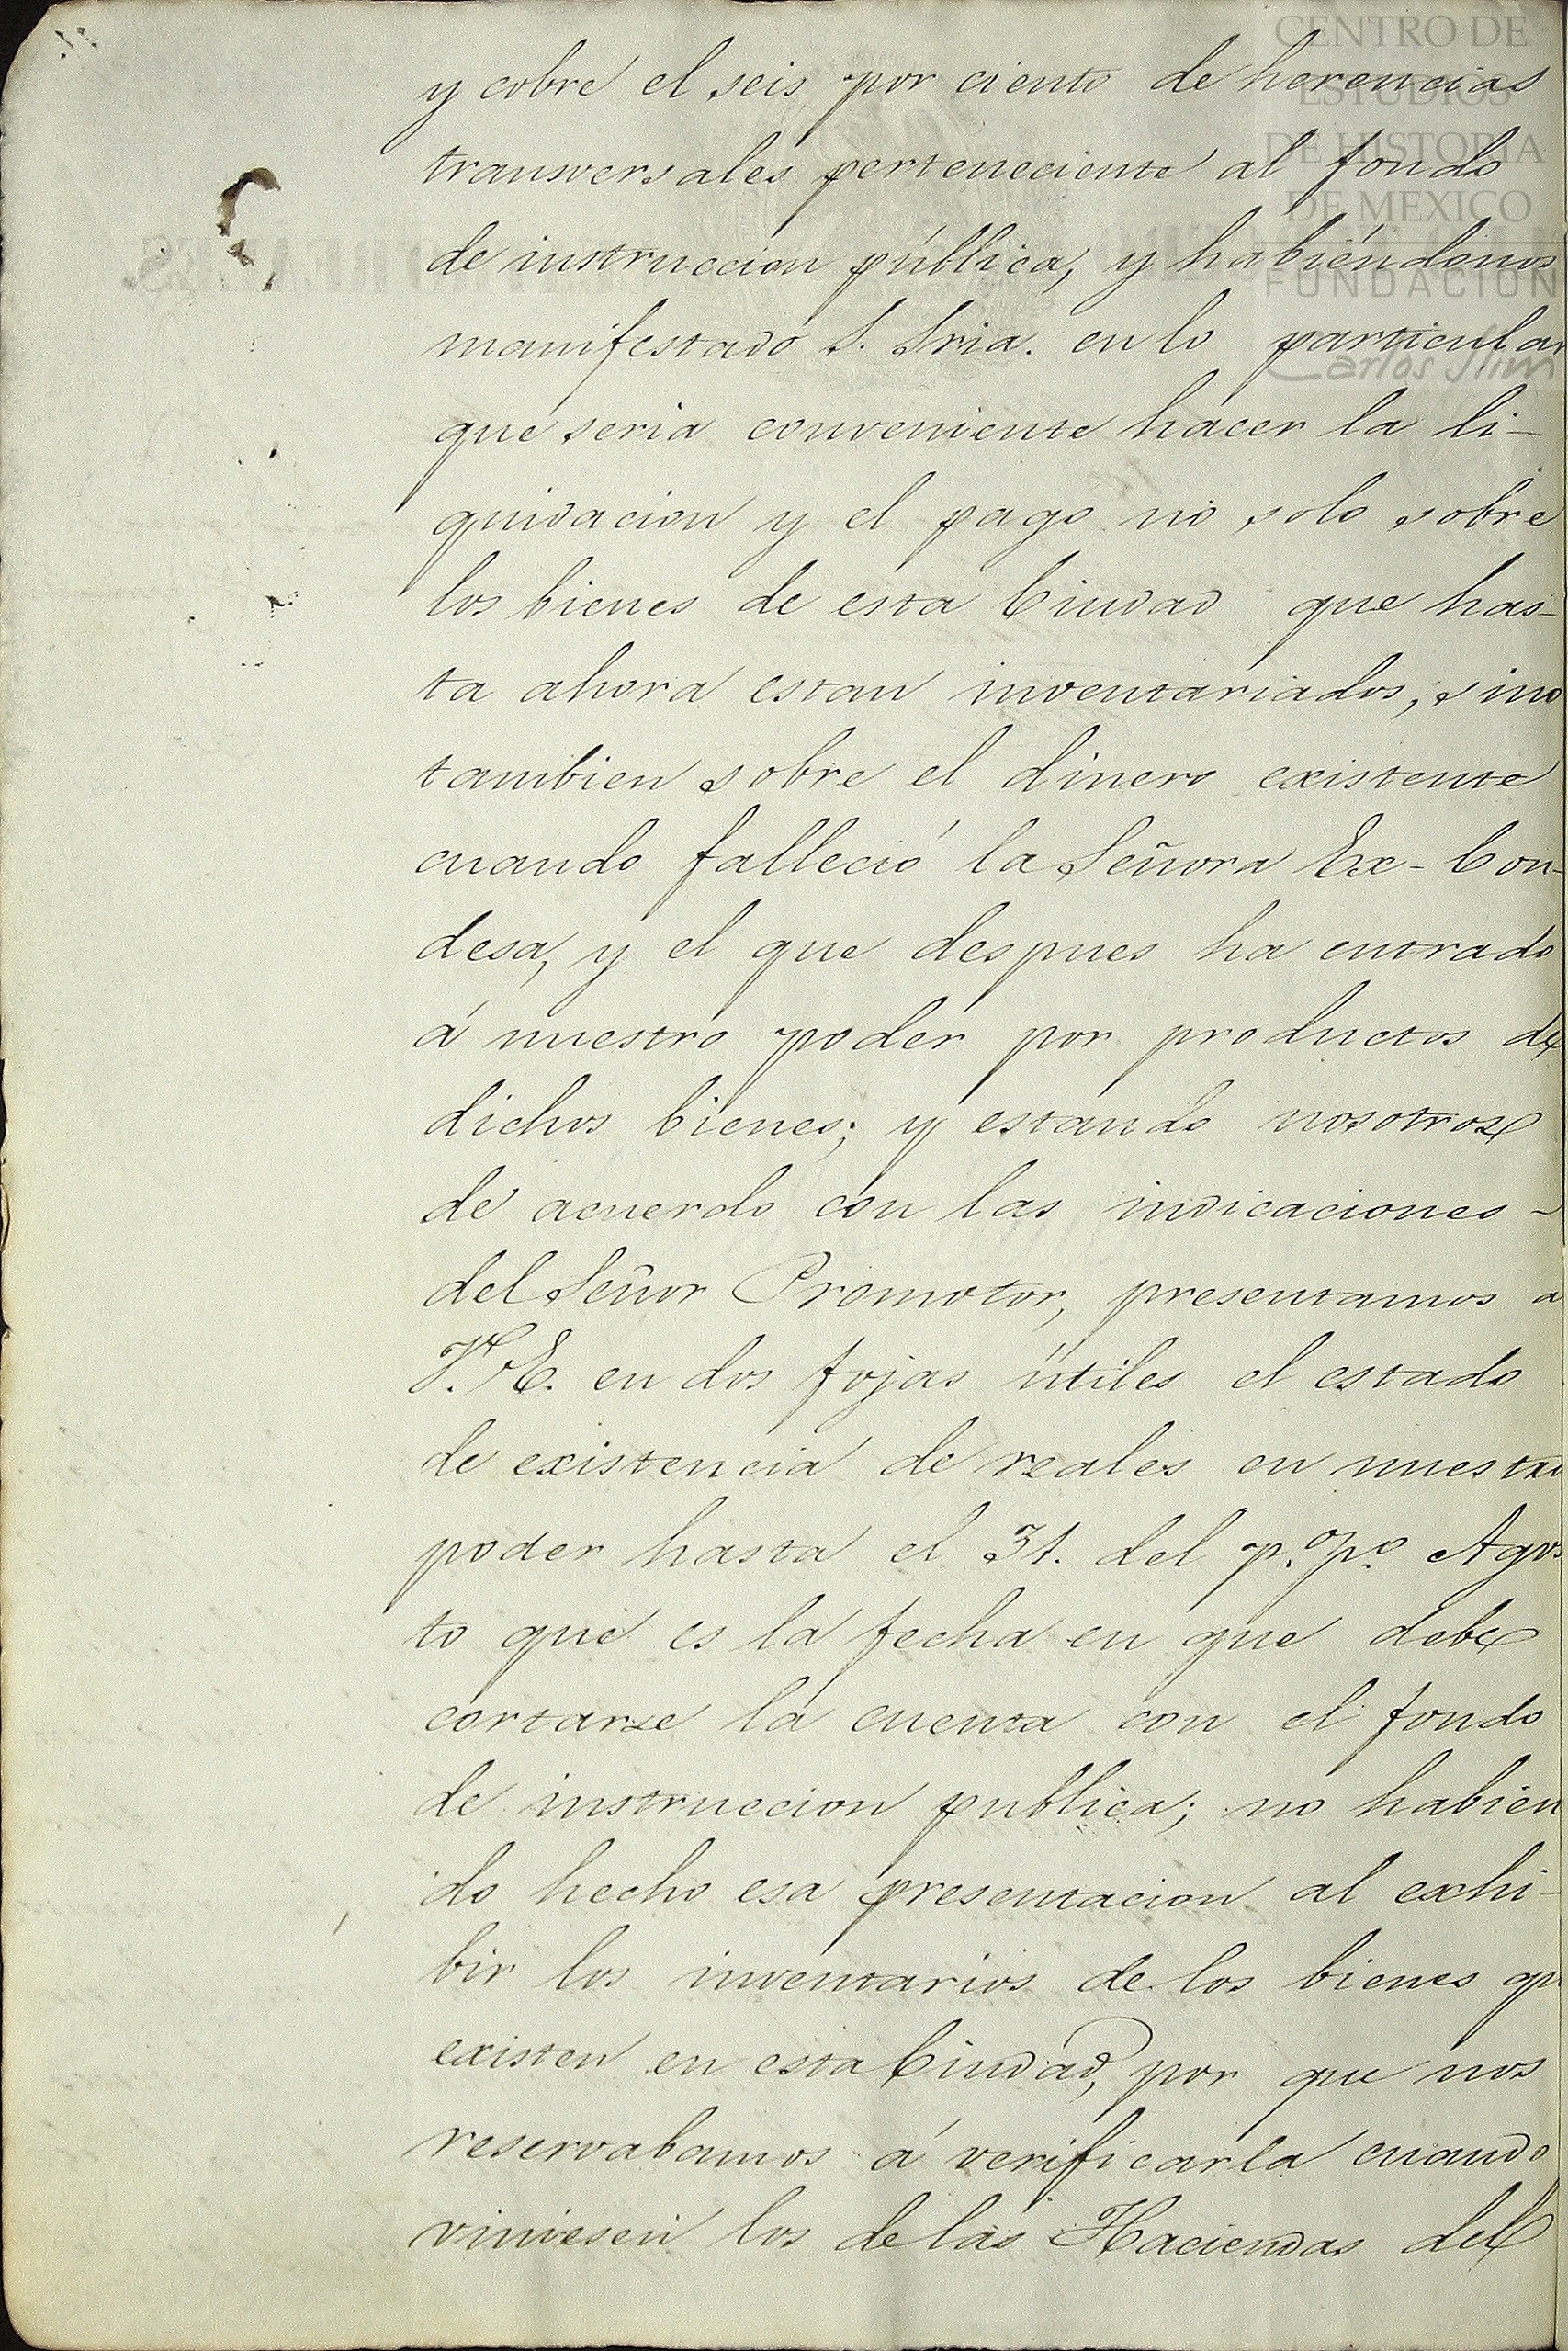 CENTRO DE
ESTUDIOS
DE HISTORIA
DE MEXICO
FUNDACION
Carlos Slim
y cobre el seis por ciento de herencias
transversales perteneciente al fondo
de instruccion pública, y habiéndonos
manifestado S. Sria. en lo particular
que seria conveniente hacer la li-
quidacion y el pago no solo sobre
los bienes de esta Ciudad que has-
ta ahora estan inventariados, sino
tambien sobre el dinero existente
cuando falleció la Señora Ex-Con-
desa, y el que despues ha entrado
á nuestro poder por productos de
dichos bienes; y estando nosotros
de acuerdo con las indicaciones -
del Señor Promotor, presentamos a
V. E. en dos fojas útiles el estado
de existencia de reales en nuestro
poder hasta el 31. del p.º p.º Agos
to que es la fecha en que debe
cortarse la cuenta con el fondo
de instruccion publica; no habien
do hecho esa presentacion al exhi-
bir los inventarios de los bienes qu
existen en esta Ciudad, por que nos
reservabamos á verificarla cuando
viniesen los de las Haciendas del